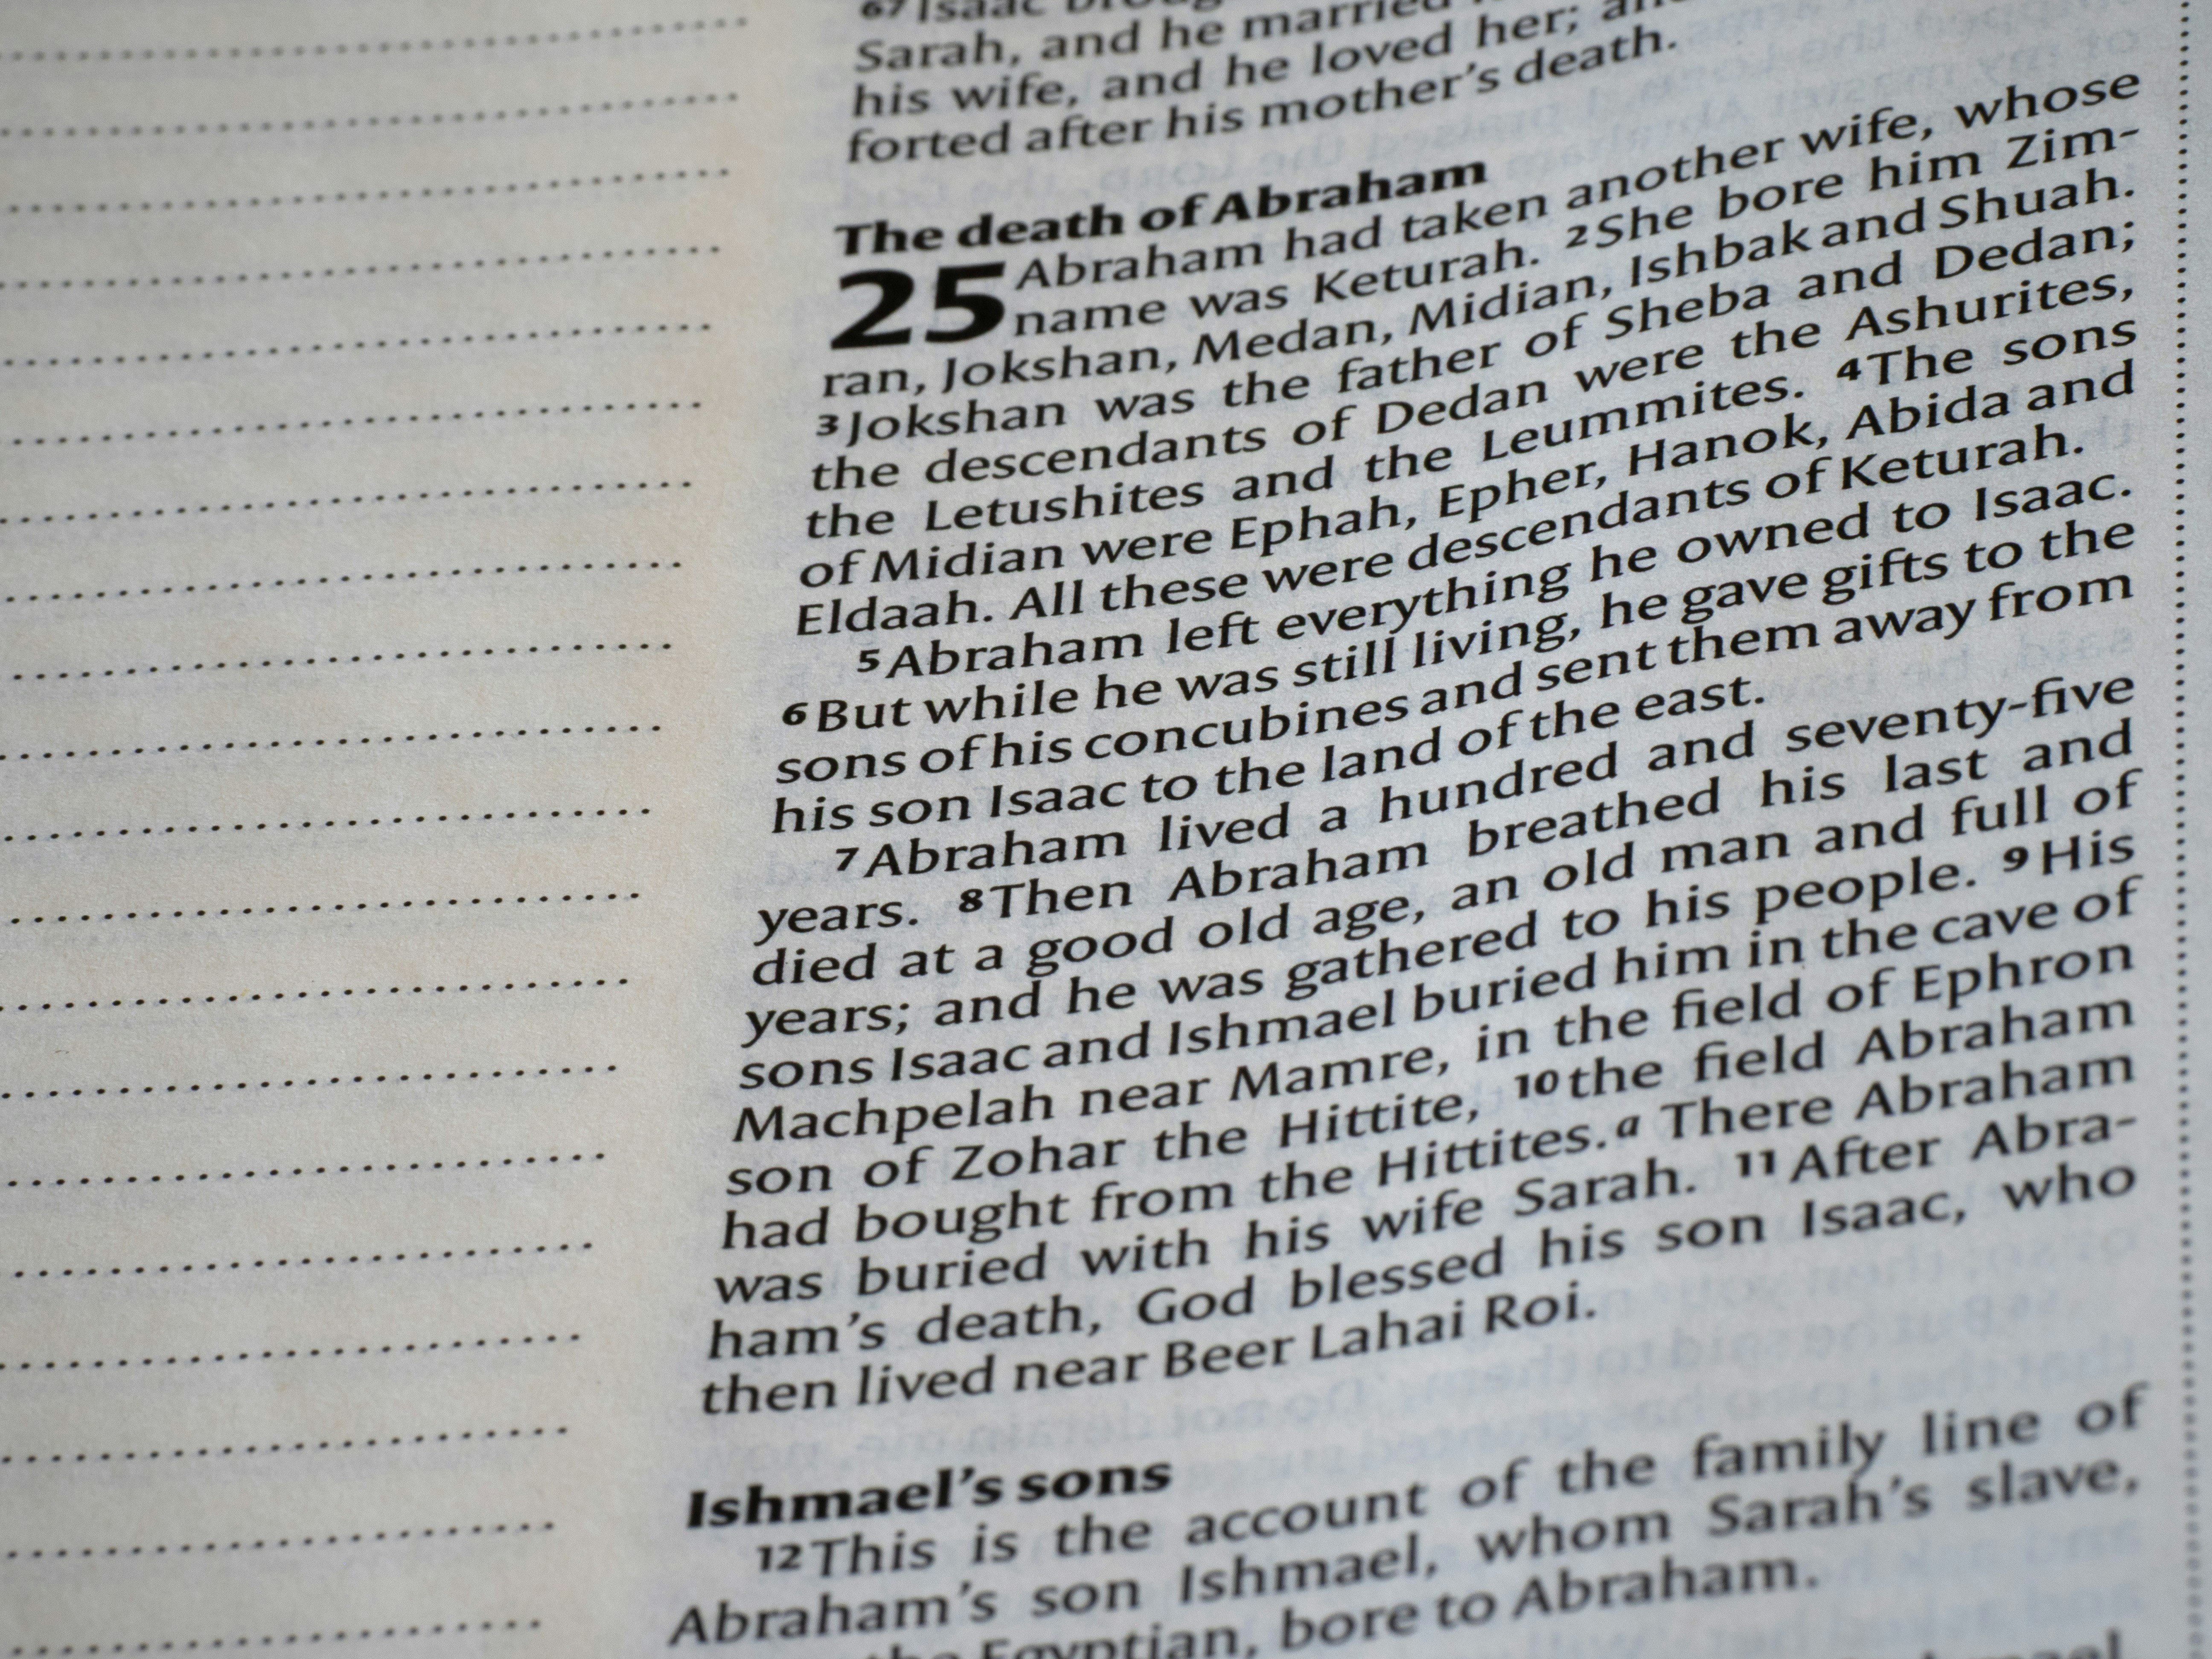 67 Isaac
Sarah, and he married
his wife, and he loved her;
forted after his mother's death.
The death of Abraham
25 Abraham had taken another wife, whose
name was Keturah. 2 She bore him Zim-
ran, Jokshan, Medan, Midian, Ishbak and Shuah.
3 Jokshan was the father of Sheba and Dedan;
the descendants of Dedan were the Ashurites,
the Letushites and the Leummites. 4 The sons
of Midian were Ephah, Epher, Hanok, Abida and
Eldaah. All these were descendants of Keturah.
5 Abraham left everything he owned to Isaac.
6 But while he was still living, he gave gifts to the
sons of his concubines and sent them away from
his son Isaac to the land of the east.
7 Abraham lived a hundred and seventy-five
years. 8 Then Abraham breathed his last and
died at a good old age, an old man and full of
years; and he was gathered to his people. 9 His
sons Isaac and Ishmael buried him in the cave of
Machpelah near Mamre, in the field of Ephron
son of Zohar the Hittite, 10 the field Abraham
had bought from the Hittites.a There Abraham
was buried with his wife Sarah. 11 After Abra-
ham's death, God blessed his son Isaac, who
then lived near Beer Lahai Roi.
Ishmael's sons
12 This is the account of the family line of
Abraham's son Ishmael, whom Sarah's slave,
the Egyptian, bore to Abraham.